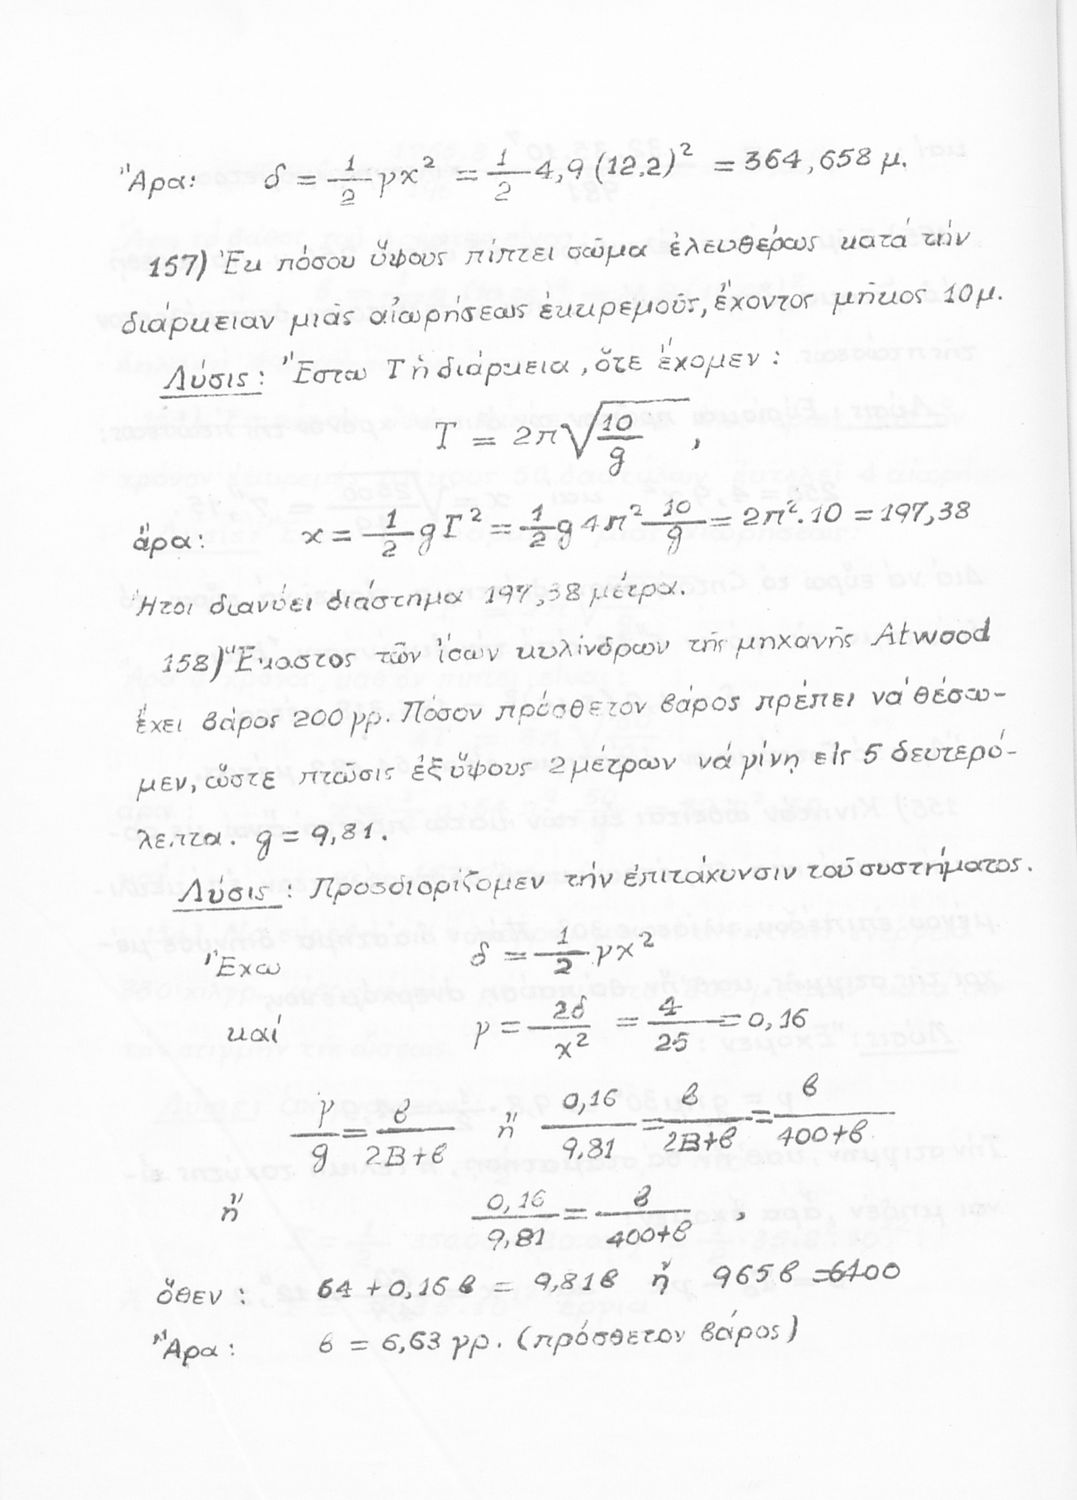 Ἄρα: δ = 1/2 γx² = 1/2 4,9 (12.2)² = 364,658 μ.
157) Ἐκ πόσου ὕψους πίπτει σῶμα ἐλευθέρως κατά τήν
διάρκειαν μιᾶς αἰωρήσεως ἐκκρεμοῦς, ἔχοντος μῆκος 10 μ.
Λύσις: Ἔστω Τ ἡ διάρκεια, ὅτε ἔχομεν:
T = 2π√(10/g) ,
ἄρα: x = 1/2 gT² = 1/2 g 4π² 10/g = 2π².10 = 197,38
Ἤτοι διανύει διάστημα 197,38 μέτρα.
158) Ἕκαστος τῶν ἴσων κυλίνδρων τῆς μηχανῆς Atwood
ἔχει βάρος 200 γρ. Πόσον πρόσθετον βάρος πρέπει νά θέσω-
μεν, ὥστε πτῶσις ἐξ ὕψους 2 μέτρων νά γίνῃ εἰς 5 δευτερό-
λεπτα. g = 9,81.
Λύσις: Προσδιορίζομεν τήν ἐπιτάχυνσιν τοῦ συστήματος.
Ἔχω δ = 1/2 γx²
καί γ = 2δ/x² = 4/25 = 0,16
γ/g = β/(2Β+β) ἤ 0,16/9,81 = β/(2Β+β) = β/(400+β)
ἤ 0,16/9,81 = β/(400+β) ,
ὅθεν: 64 + 0,16 β = 9,81β ἤ 965β = 6400
Ἄρα: β = 6,63 γρ. (πρόσθετον βάρος)